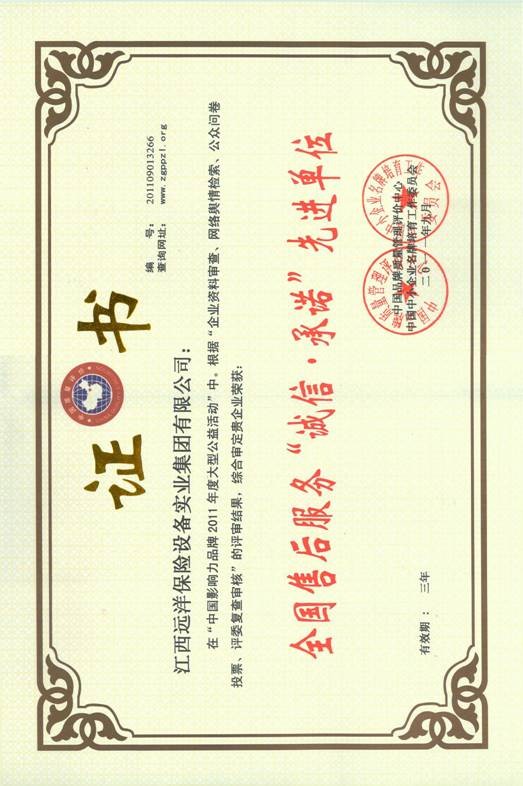 证书
编　号：201109013266
查询网址：www.zgppzl.org
江西远洋保险设备实业集团有限公司：
在“中国影响力品牌2011年度大型公益活动”中。根据“企业资料审查、网络舆情检索、公众问卷
投票、评委复查审核”的评审结果，综合审定贵企业荣获：
全国售后服务“诚信·承诺”先进单位
中国品牌质量管理评价中心
中国中小企业名牌培育工作委员会
二〇一一年九月
有效期：三年